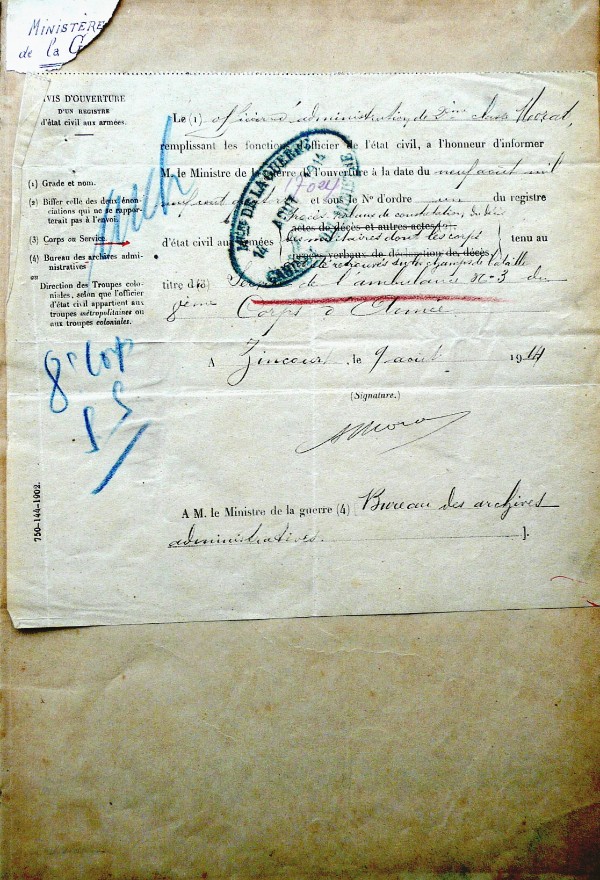 MINISTÈRE
de la G
AVIS D'OUVERTURE
D'UN REGISTRE
d'état civil aux armées.
(1) Grade et nom.
(2) Biffer celle des deux énonciations qui ne se rapporterait pas à l'envoi.
(3) Corps ou Service.
(4) Bureau des archives administratives
ou
Direction des Troupes coloniales, selon que l'officier d'état civil appartient aux troupes métropolitaines ou aux troupes coloniales.
8e Corp
750-144-1902.
Le (1) officier d'administration de 2ème classe Morat,
remplissant les fonctions d'officier de l'état civil, a l'honneur d'informer
M. le Ministre de la guerre de l'ouverture à la date du neuf août mil
neuf cent quatorze et sous le No d'ordre un du registre
procès verbaux de constatation de décès
actes de décès et autres actes
d'état civil aux armées des militaires dont les corps tenu au
procès-verbaux de déclaration de décès
ont été retrouvés sur les champs de bataille
titre d (3) Service de l'ambulance No 3 du
8ème Corps d'Armée
A Zincourt, le 9 août 1914
(Signature.)
AMorat
A M. le Ministre de la guerre (4) Bureau des archives
administratives ].
MIN. DE LA GUERRE
14 AOUT 1914